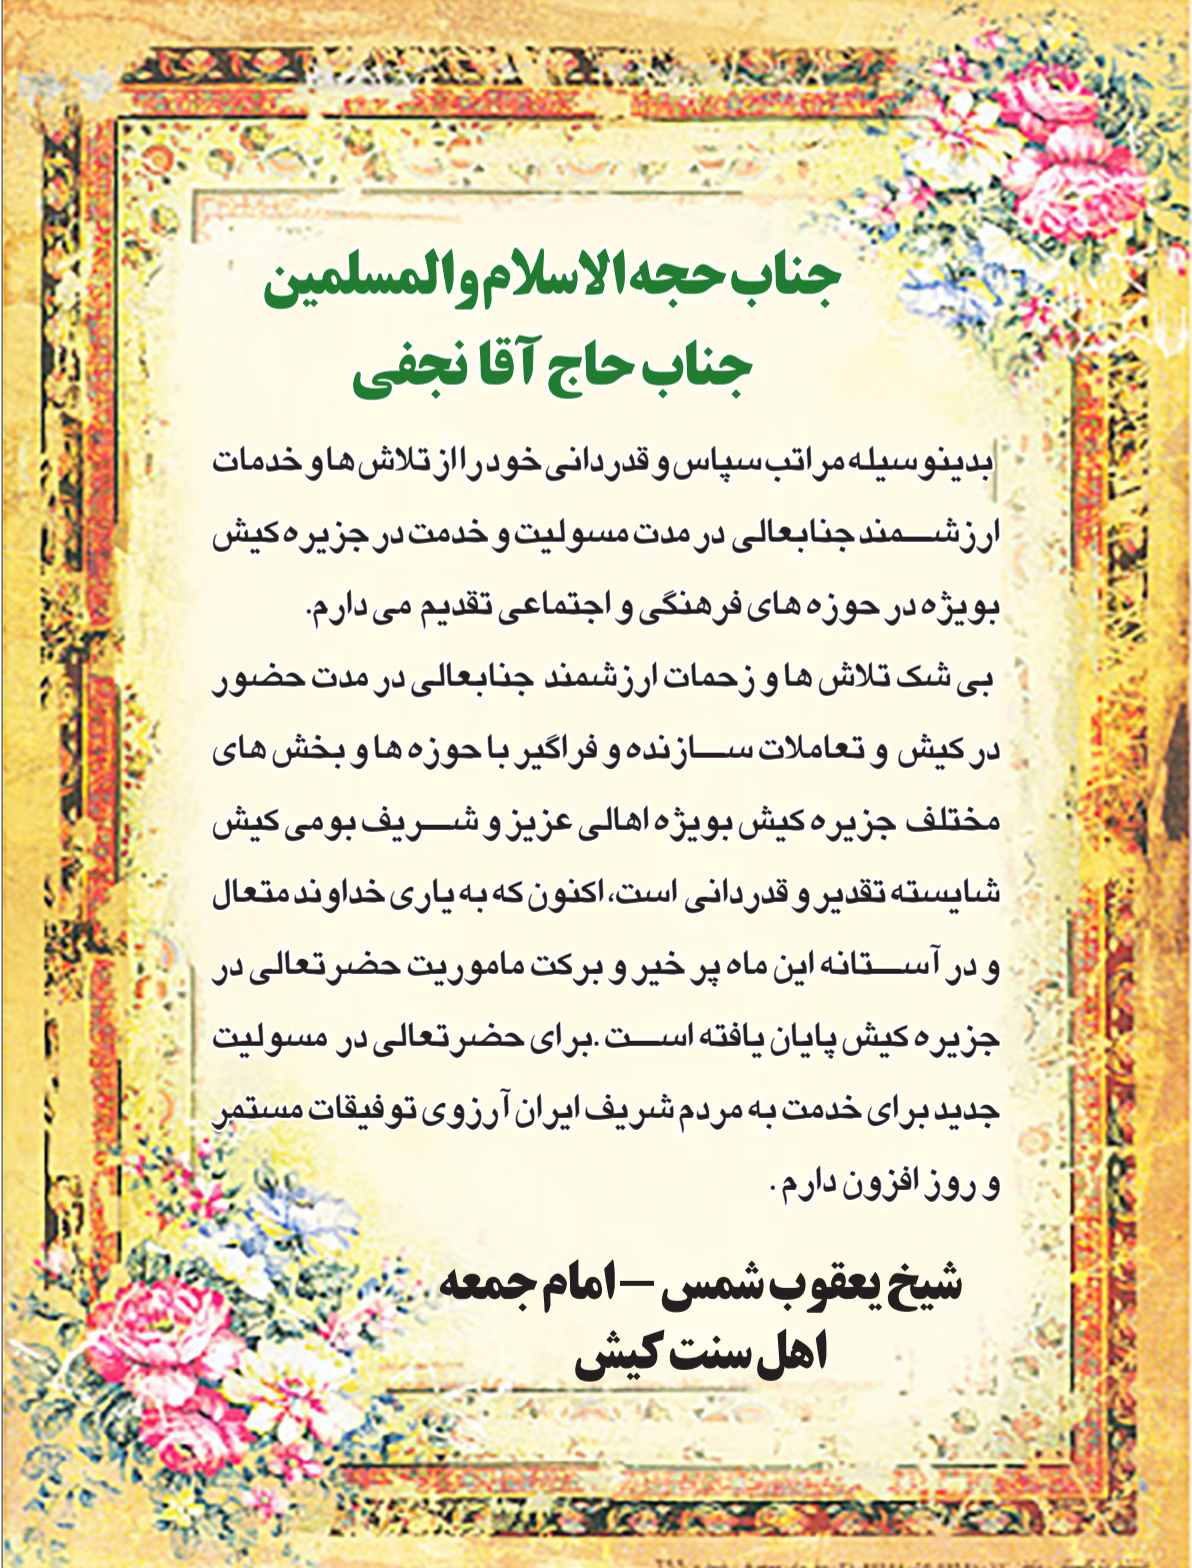 جناب حجه الاسلام والمسلمین
جناب حاج آقا نجفی
بدینوسیله مراتب سپاس و قدردانی خود را از تلاش ها و خدمات
ارزشمند جنابعالی در مدت مسولیت و خدمت در جزیره کیش
بویژه در حوزه های فرهنگی و اجتماعی تقدیم می دارم.
بی شک تلاش ها و زحمات ارزشمند جنابعالی در مدت حضور
در کیش و تعاملات سازنده و فراگیر با حوزه ها و بخش های
مختلف جزیره کیش بویژه اهالی عزیز و شریف بومی کیش
شایسته تقدیر و قدردانی است، اکنون که به یاری خداوند متعال
و در آستانه این ماه پر خیر و برکت ماموریت حضرتعالی در
جزیره کیش پایان یافته است .برای حضرتعالی در مسولیت
جدید برای خدمت به مردم شریف ایران آرزوی توفیقات مستمر
و روز افزون دارم .
شیخ یعقوب شمس – امام جمعه
اهل سنت کیش